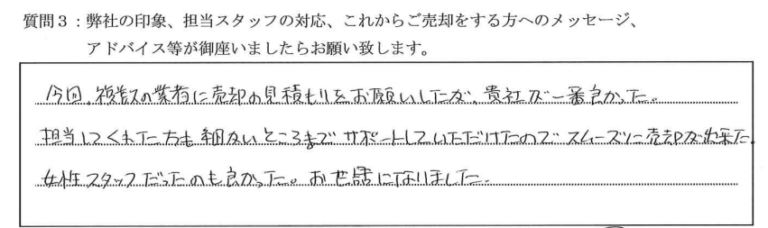 質問3：弊社の印象、担当スタッフの対応、これからご売却をする方へのメッセージ、
アドバイス等が御座いましたらお願い致します。
今回、複数の業者に売却の見積もりをお願いしたが、貴社が一番良かった。
担当してくれた方も細かいところまでサポートしていただけたのでスムーズに売却が出来た。
女性スタッフだったのも良かった。お世話になりました。